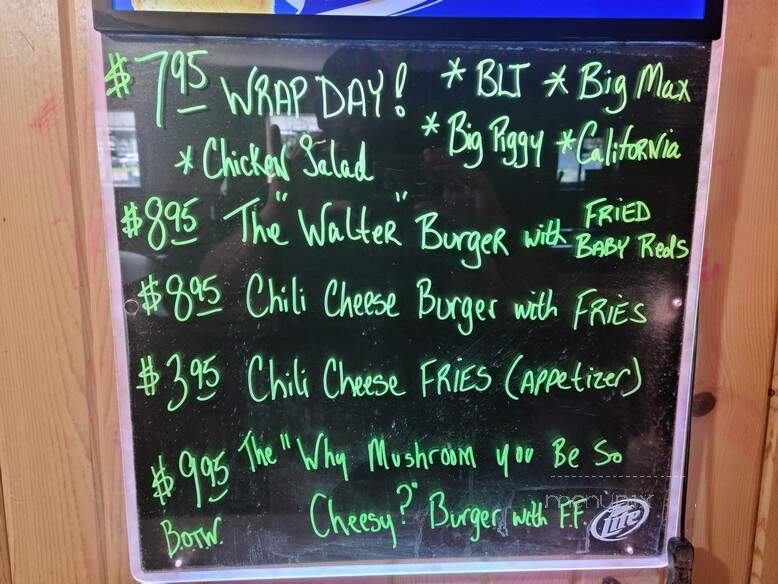 $7.95 WRAP DAY! * BLT * Big Max
* Chicken Salad * Big Piggy * California
$8.95 The "Walter" Burger with FRIED
BABY Reds
$8.95 Chili Cheese Burger with FRIES
$3.95 Chili Cheese FRIES (Appetizer)
$9.95 The "Why Mushroom you Be So
Cheesy?" Burger with F.F.
B.O.T.W.
menupix
Lite